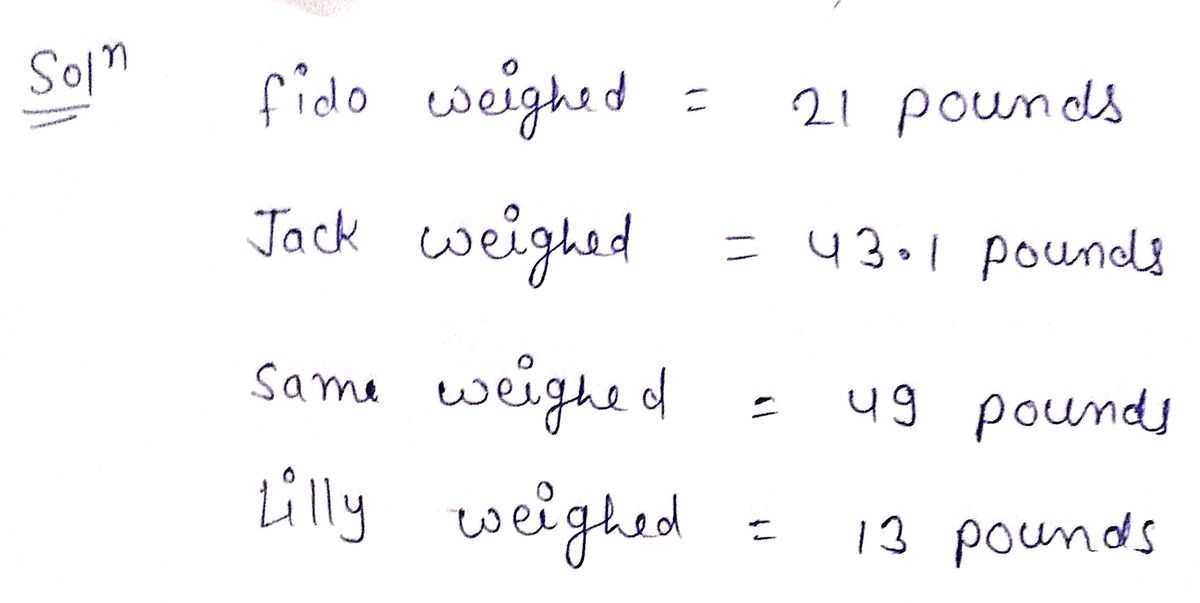 Solⁿ fido weighed = 21 pounds
Jack weighed = 43.1 pounds
Same weighed = 49 pounds
Lilly weighed = 13 pounds